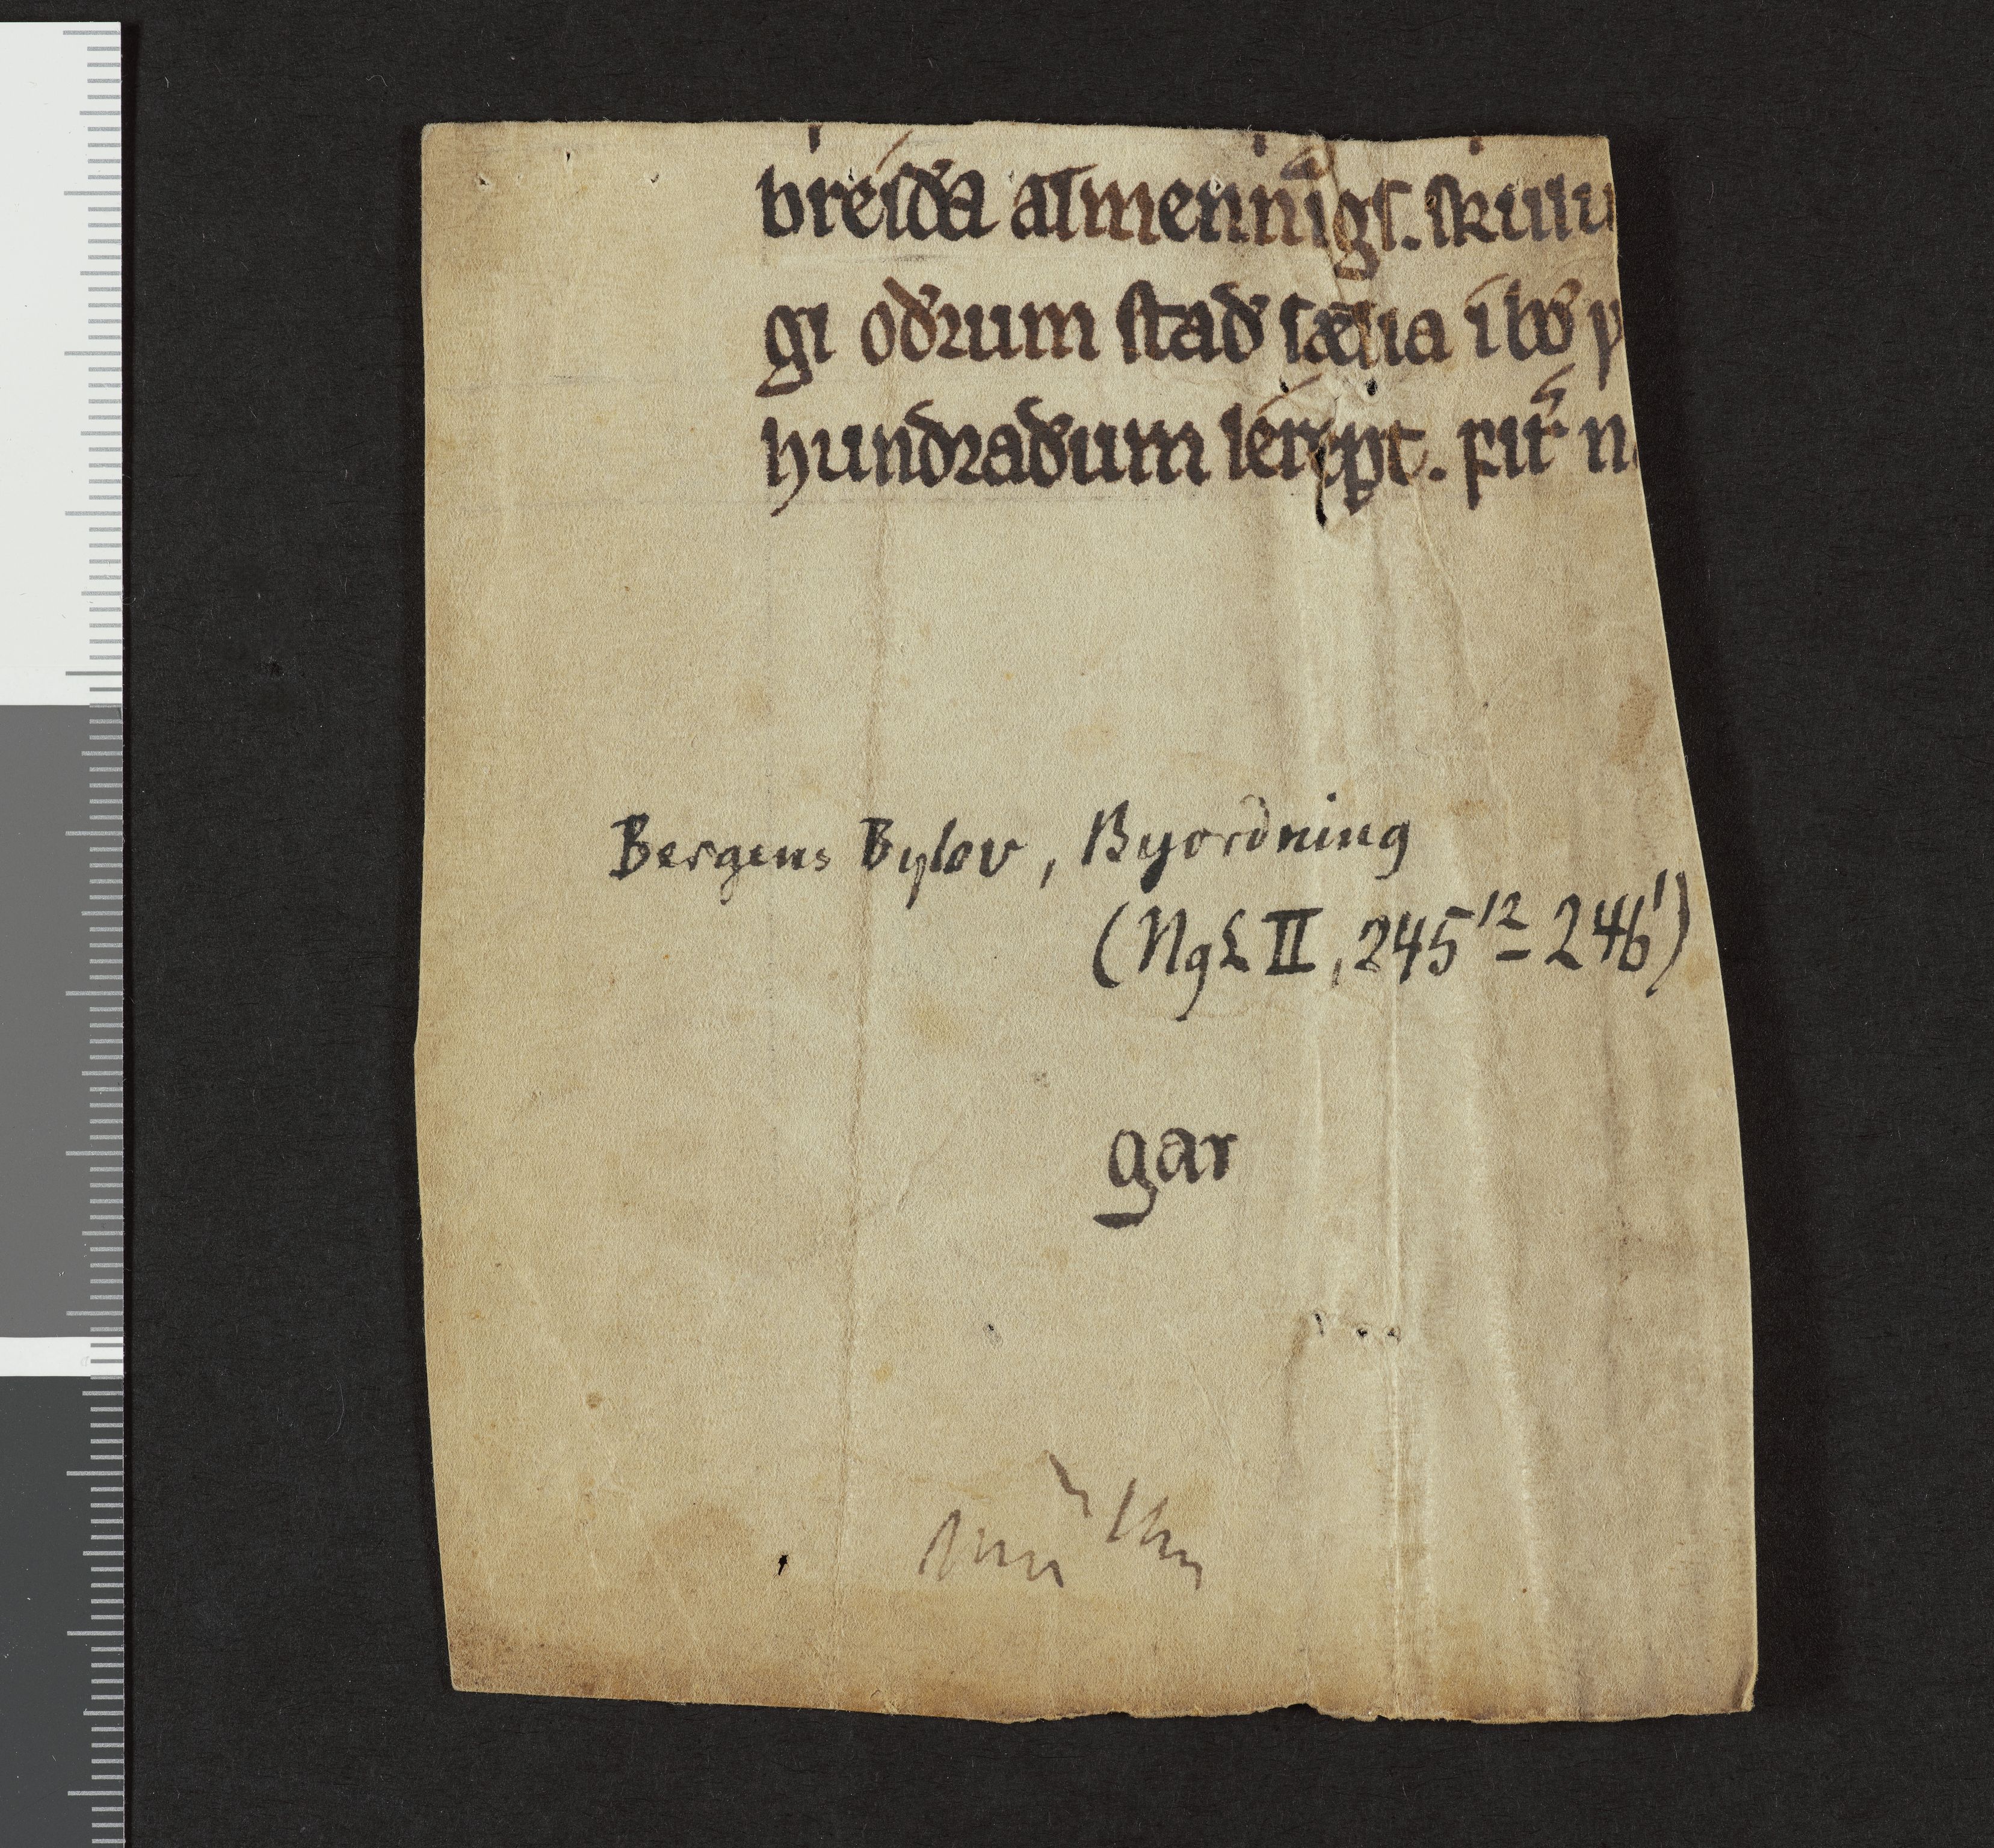 breidda almenníngs. skulu
gi odrum stad sælia i bø y
hundradum lérept. firir n
Bergens Bylov, Byordning
(NgL II, 245¹² – 246¹)
gar